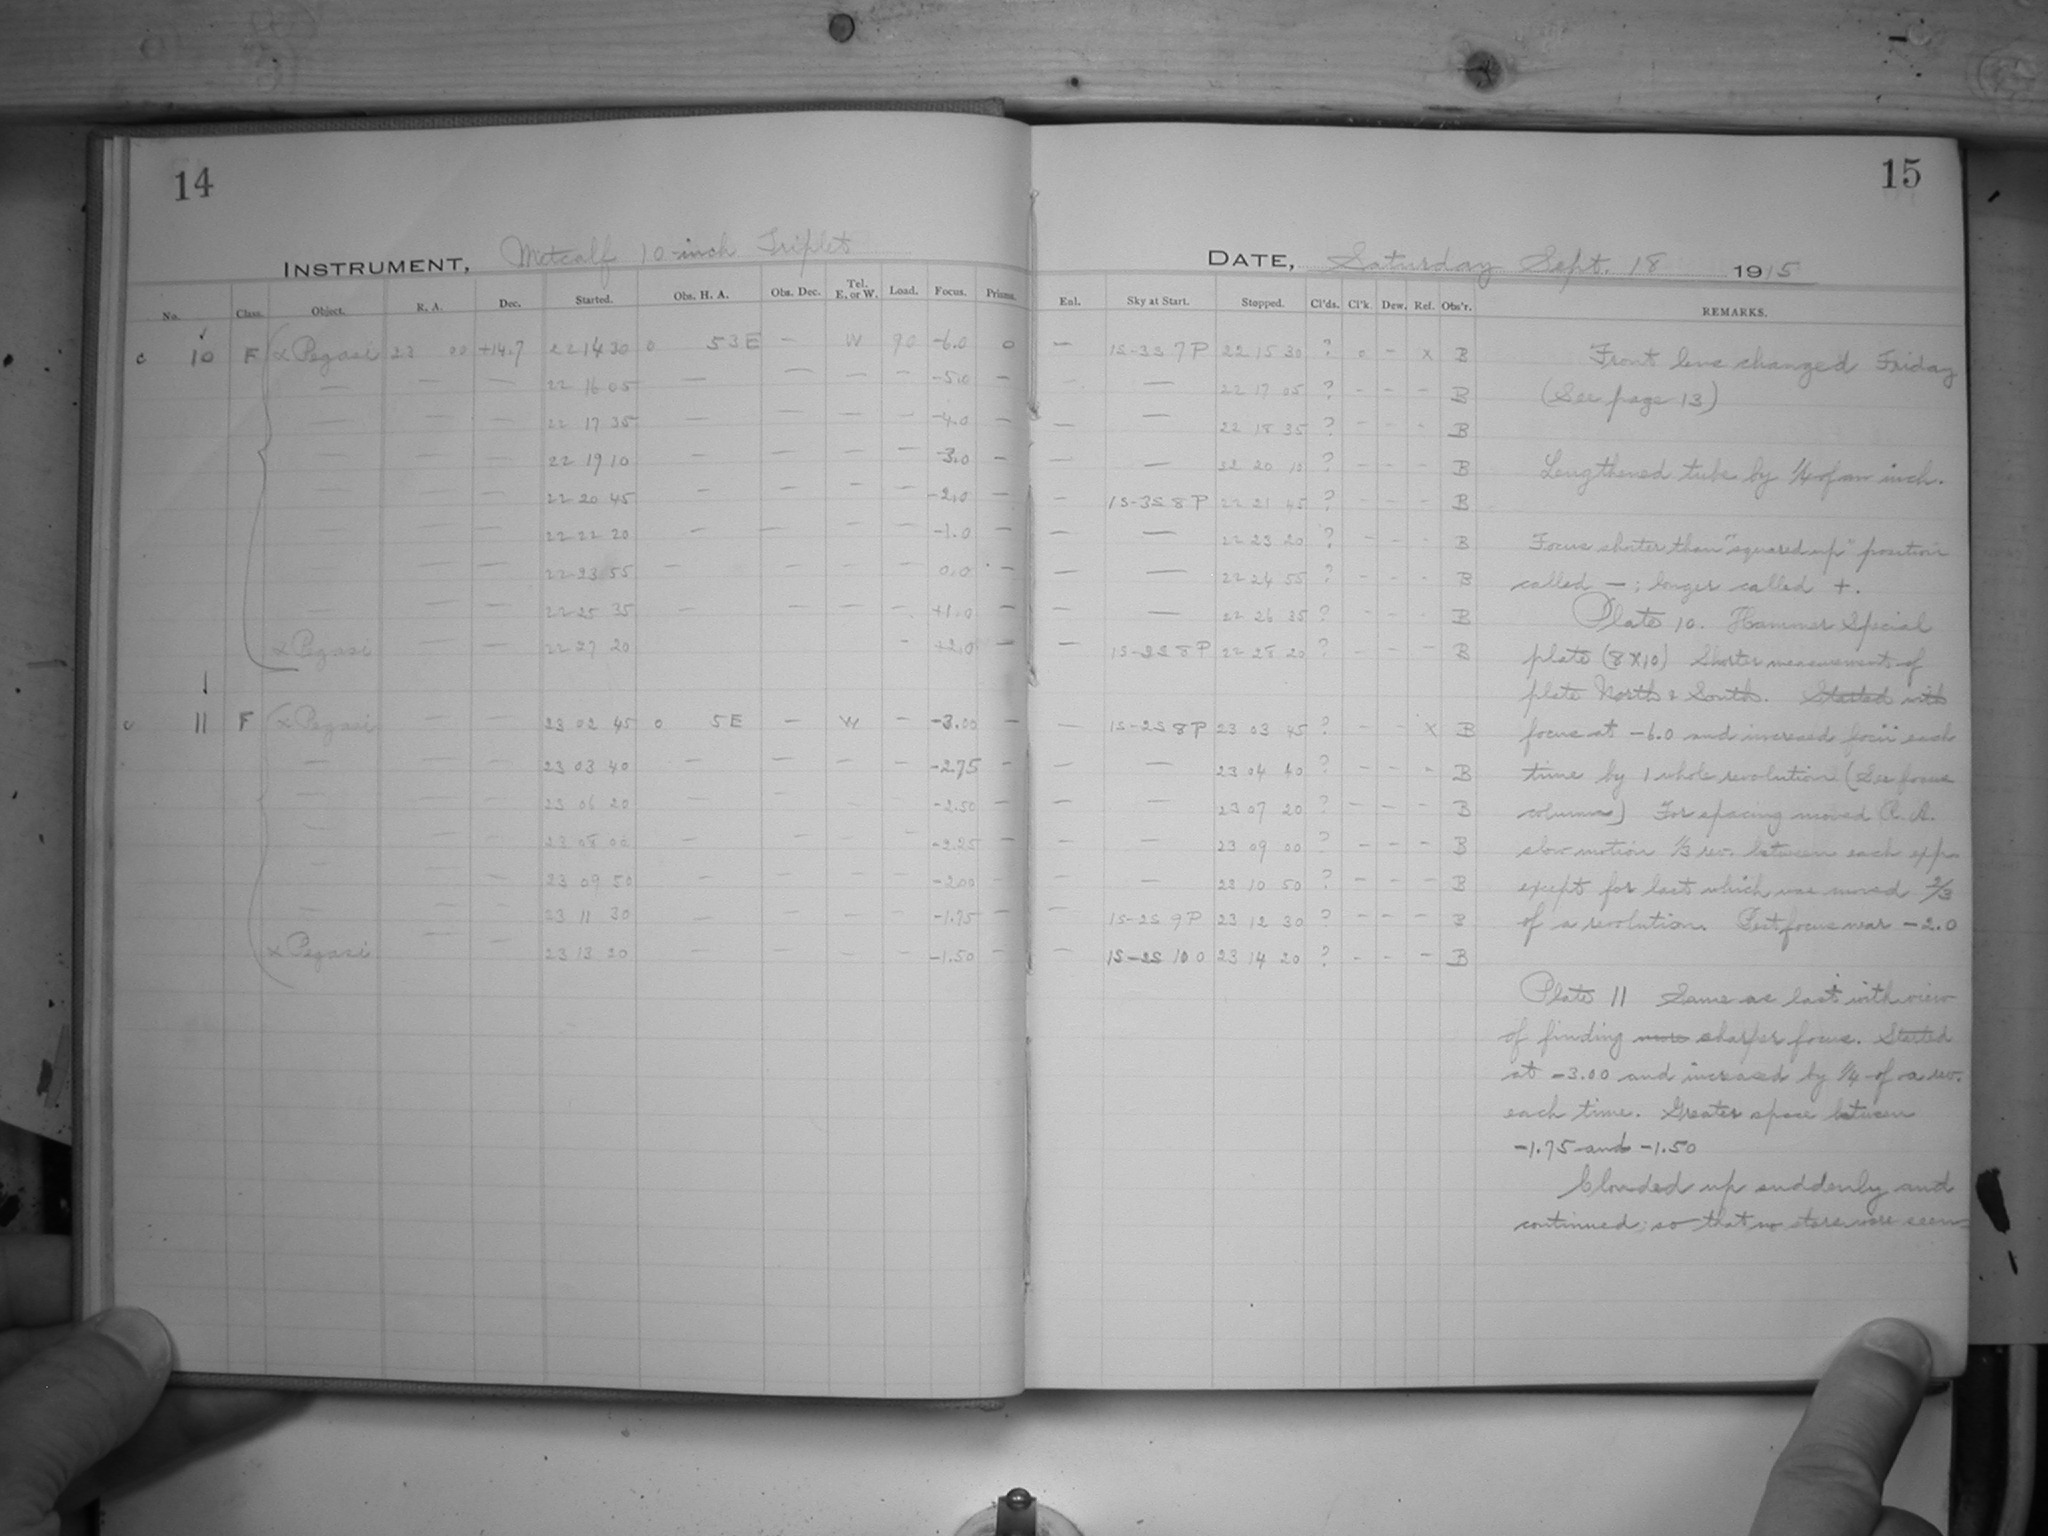 14
INSTRUMENT, Metcalf 10-inch Triplet
No. Class. Object. R. A. Dec. Started. Obs. H. A. Obs. Dec. Tel. E. or W. Load. Focus. Prisms.
c 10 F α Pegasi 23 00 +14.7 22 14 30 0 53 E — W 90 -6.0 0
— — — 22 16 05 — — — — -5.0 —
— — — 22 17 35 — — — — -4.0 —
— — — 22 19 10 — — — — -3.0 —
— — — 22 20 45 — — — — -2.0 —
— — — 22 22 20 — — — — -1.0 —
— — — 22 23 55 — — — — 0.0 —
— — — 22 25 35 — — — — +1.0 —
α Pegasi — — 22 27 20 — +2.0 —
c 11 F α Pegasi — — 23 02 45 0 5 E — W — -3.00 —
— — — 23 03 40 — — — — -2.75 —
— — — 23 06 20 — — — — -2.50 —
— — — 23 08 00 — — — — -2.25 —
— — — 23 09 50 — — — — -2.00 —
— — — 23 11 30 — — — — -1.75 —
α Pegasi — — 23 13 20 — — — — -1.50 —
15
DATE, Saturday Sept. 18 1915
Enl. Sky at Start. Stopped. Cl'ds. Cl'k. Dew. Ref. Obs'r. REMARKS.
— 1S-3S 7 P 22 15 30 ? 0 — x B
— — 22 17 05 ? - - - B
— — 22 18 35 ? - - - B
— — 22 20 10 ? - - - B
— 1S-3S 8 P 22 21 45 ? - - - B
— — 22 23 20 ? - - - B
— — 22 24 55 ? - - - B
— — 22 26 35 ? - - - B
— 1S-3S 8 P 22 28 20 ? - - - B
— 1S-2S 8 P 23 03 45 ? - - x B
— — 23 04 40 ? - - - B
— — 23 07 20 ? - - - B
— — 23 09 00 ? - - - B
— — 23 10 50 ? - - - B
— 1S-2S 9 P 23 12 30 ? - - - B
— 1S-2S 10 0 23 14 20 ? - - - B
Front lens changed Friday
(See page 13)
Lengthened tube by 1/4 of an inch.
Focus shorter than "squared up" position
called — ; longer called +.
Plate 10. Hammer Special
plate (8x10) Shorter measurement of
plate North & South. Started with
focus at -6.0 and increased focus each
time by 1 whole revolution (See focus
column) For spacing moved R. A.
slow motion 1/3 rev. between each exp.
except for last which was moved 2/3
of a revolution. Best focus near -2.0
Plate 11 Same as last with view
of finding more sharper focus. Started
at -3.00 and increased by 1/4 of a rev.
each time. Greater space between
-1.75 and -1.50
Clouded up suddenly and
continued; so that no stars were seen